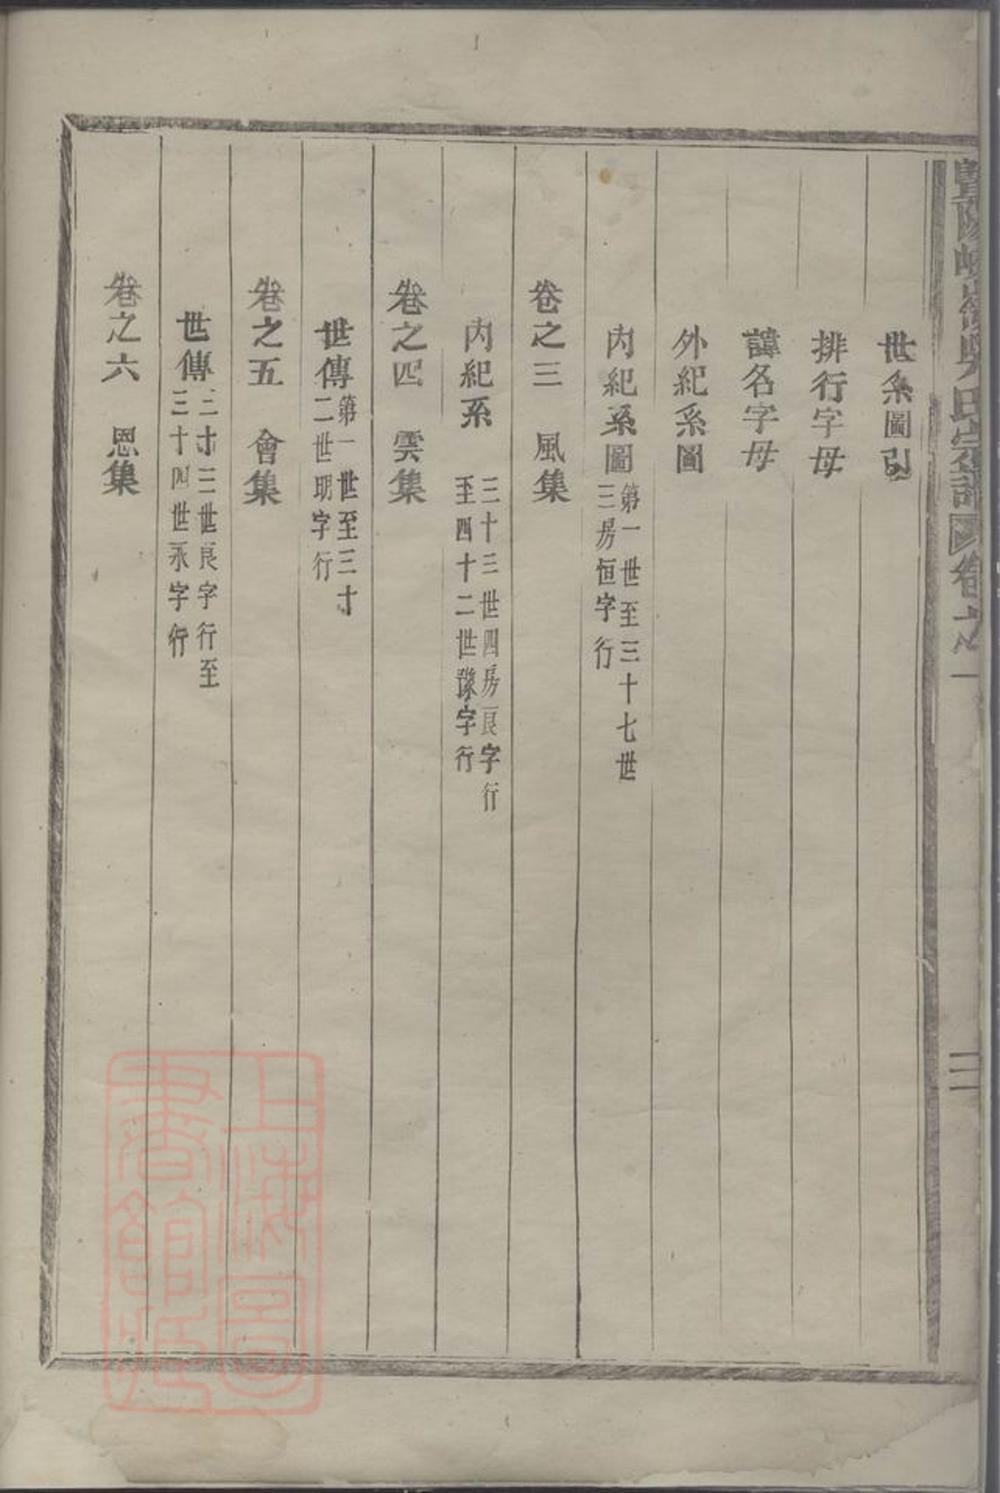 世系圖引
排行字母
諱名字母
外紀系圖
内紀系圖 第一世至三十七世
三房恒字行
卷之三 風集
内紀系 三十三世四房良字行
至四十二世豫字行
卷之四 雲集
世傳 第一世至三十
二世明字行
卷之五 會集
世傳 三十三世良字行至
三十四世承字行
卷之六 恩集
氏宗譜 卷之一
二
上海圖
書館藏